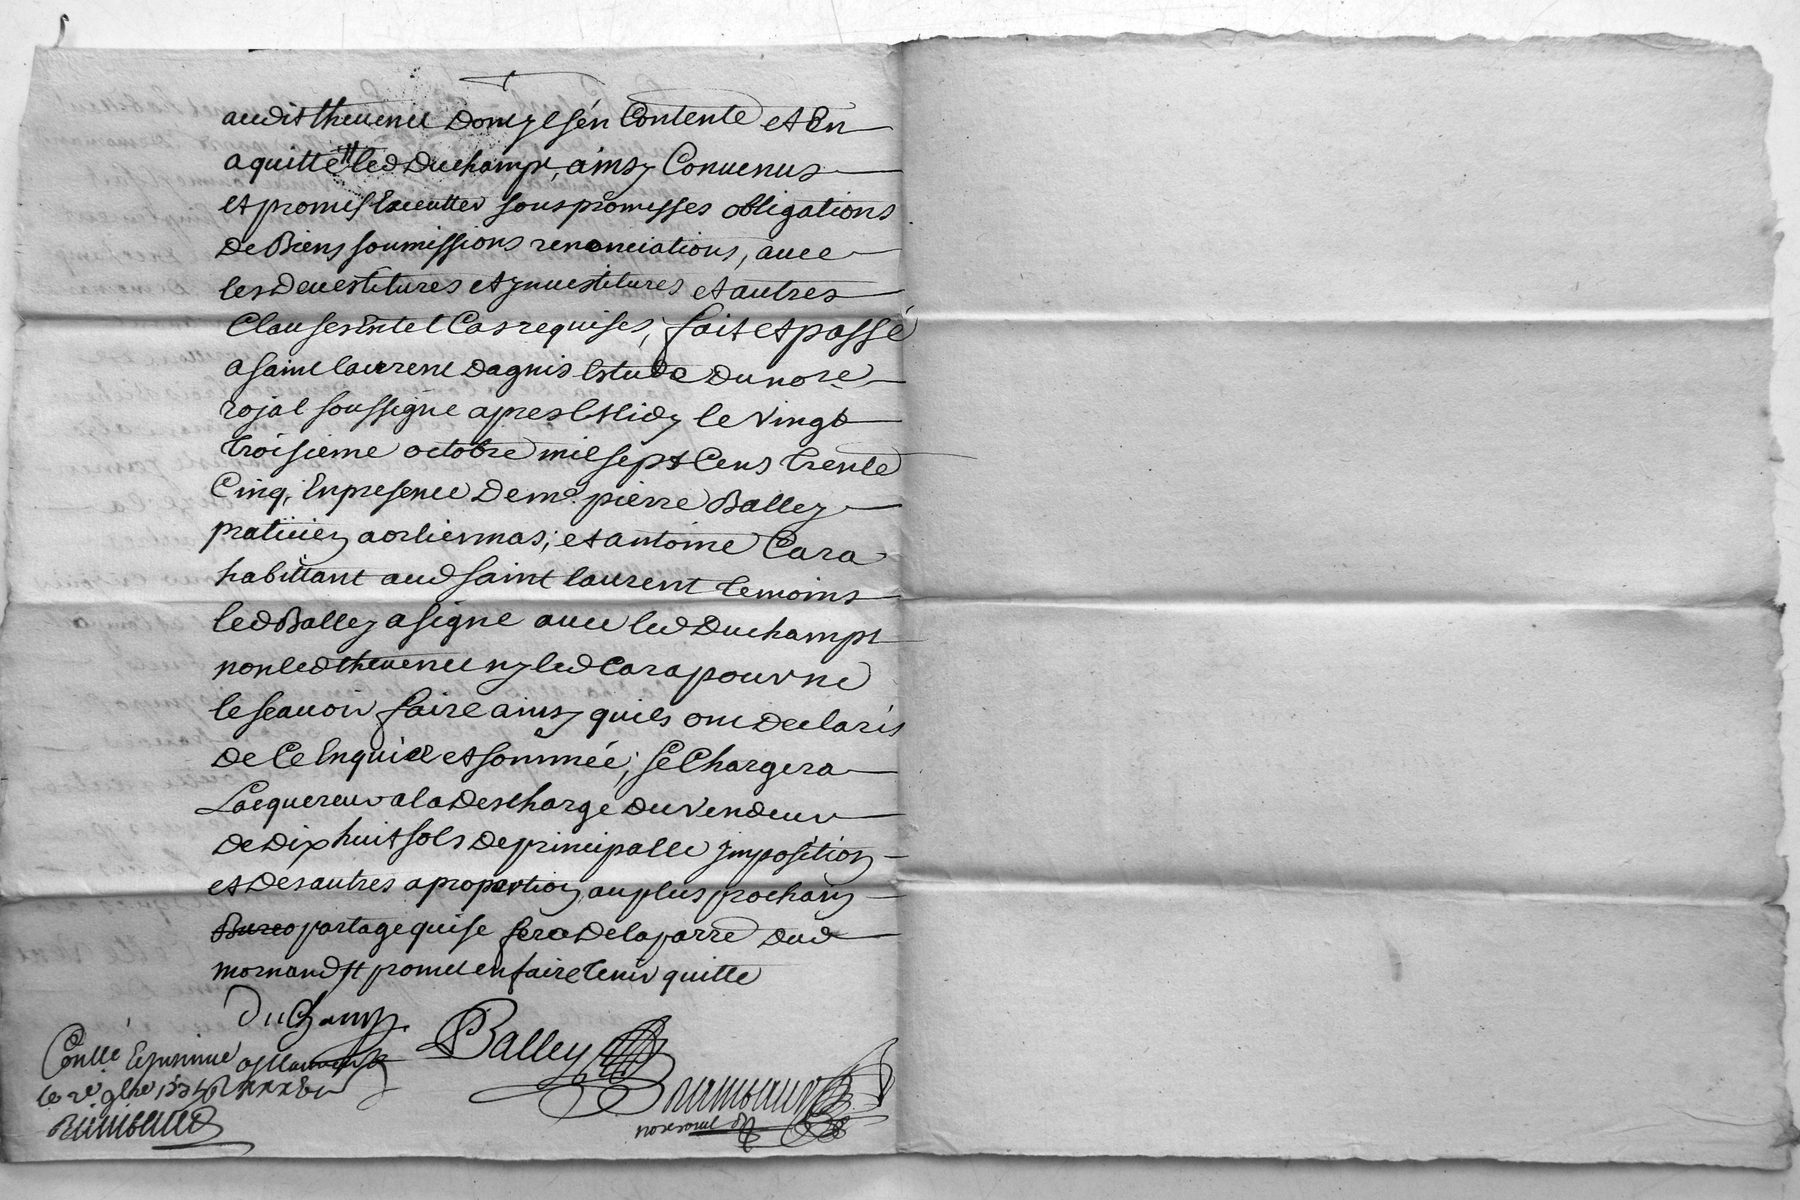 audit thevenet dont yl s'en Contente et En
aquitté led Duchampt, ainsy Convenus
et promis Executter sous promesses obligations
de Biens soumissions renonciations, avec
les devestitures et ynvestitures et autres
Clauses En tel Cas requises, fait et passé
a saint laurent dagnis Estude du no.re
rojal soussigné apres Midy le vingt
troisieme octobre mil sept Cens trente
Cinq, En presence de m.e pierre Balley
praticien a orliennas; et antoine Cara
habittant aud saint laurent temoins
led Balley a signé avec led Duchampt
non led thevenet ny led Cara pour ne
le scavoir faire ainsy quils ont declarés
de Ce Enquis et sommée; se Chargera
Lacquereur a la descharge du vendeur
de dix huit sols de principalle ymposition
et des autres a proportion au plus prochain
partage qui se fera de la parre dud
mornand et promet en faire tenir quitte
Duchampt
Balley
Raimbaud
Con.llé a Mornant
le 9bre 1735
Raimbaud